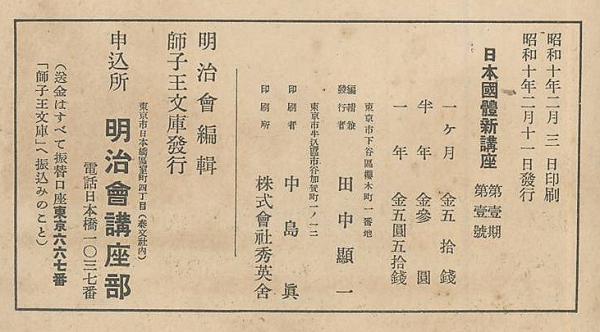 昭和十年二月三日印刷
昭和十年二月十一日發行
日本國體新講座
第壹期
第壹號
一ヶ月 金五拾錢
半年 金參圓
一年 金五圓五拾錢
東京市下谷區櫻木町一番地
編輯兼
發行者 田中顯一
東京市牛込區市谷加賀町一ノ一二
印刷者 中島眞
印刷所 株式會社秀英舍
明治會編輯
師子王文庫發行
東京市日本橋區室町四丁目(泰文社內)
申込所 明治會講座部
電話日本橋一〇三七番
(送金はすべて振替口座東京六六七番
「師子王文庫」へ振込みのこと)